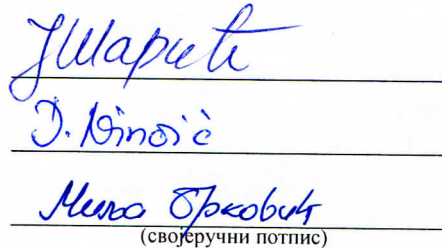 Шарић
D. Ninoić
Миља Брковић
(својеручни потпис)